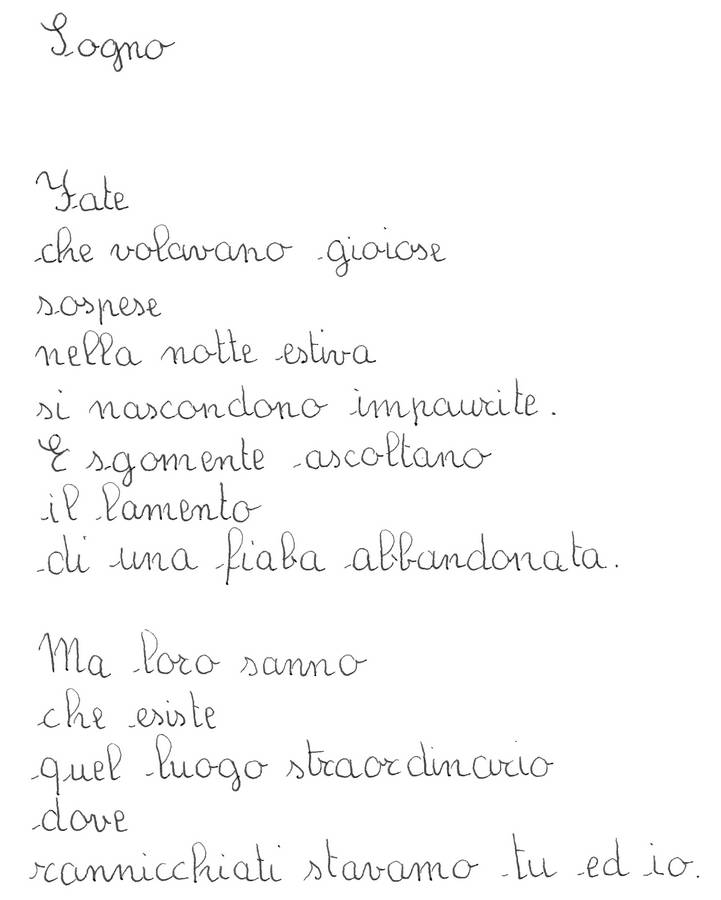 Sogno
Fate
che volavano gioiose
sospese
nella notte estiva
si nascondono impaurite.
E sgomente ascoltano
il lamento
di una fiaba abbandonata.
Ma loro sanno
che esiste
quel luogo straordinario
dove
rannicchiati stavamo tu ed io.